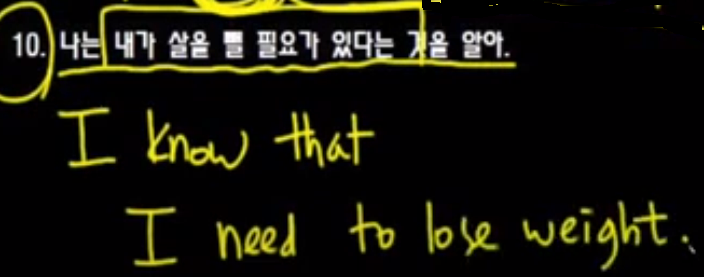 10. 나는 내가 살을 뺄 필요가 있다는 것을 알아.
I know that
I need to lose weight.